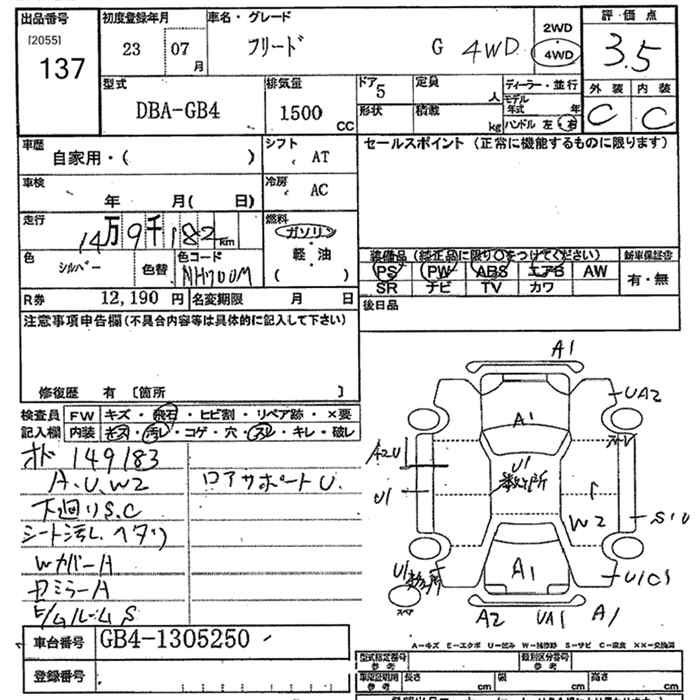 出品番号 初度登録年月 車名・グレード 2WD 評価点
[2055] 23 07 フリード G 4WD 4WD 3.5
137 月
型式 排気量 ドア 定員 ディーラー・並行 外装 内装
5 人 モデル年式 年
DBA-GB4 1500 CC 形状 積載 kg ハンドル 左・右 C C
車歴 シフト セールスポイント (正常に機能するものに限ります)
自家用・( ) AT
車検 冷房 AC
年 月( 日)
走行 燃料
14万9千182km ガソリン
・
軽・油
( )
色 シルバー 色替 色コード NH700M
装備品 (純正品に限り○をつけてください) 新車保証書
PS PW ABS エアB AW 有・無
SR ナビ TV カワ
R券 12,190 円 名変期限 月 日 後日品
注意事項申告欄(不具合内容等は具体的に記入して下さい)
修復歴 有 [箇所 ]
検査員 FW キズ・飛石・ヒビ割・リペア跡・×要
記入欄 内装 キズ・汚レ・コゲ・穴・スレ・キレ・破レ
オド 149183
A.U.W2 ロアサポートU.
下廻りS.C
シート汚レ ヘタリ
WカバーA
ロミラーA
A1
UA2
A1
A2U
U1
U1
数ヶ所
W2
S1U
A1
U1
U1CS
スペア
A2 UA1 A1
A=キズ E=エクボ U=凹み W=補修跡 S=サビ C=腐食 XX=交換済
車台番号 GB4-1305250
登録番号
型式指定番号 参考 類別区分番号 参考
車庫証明用 参考 長さ cm 幅 cm 高さ cm